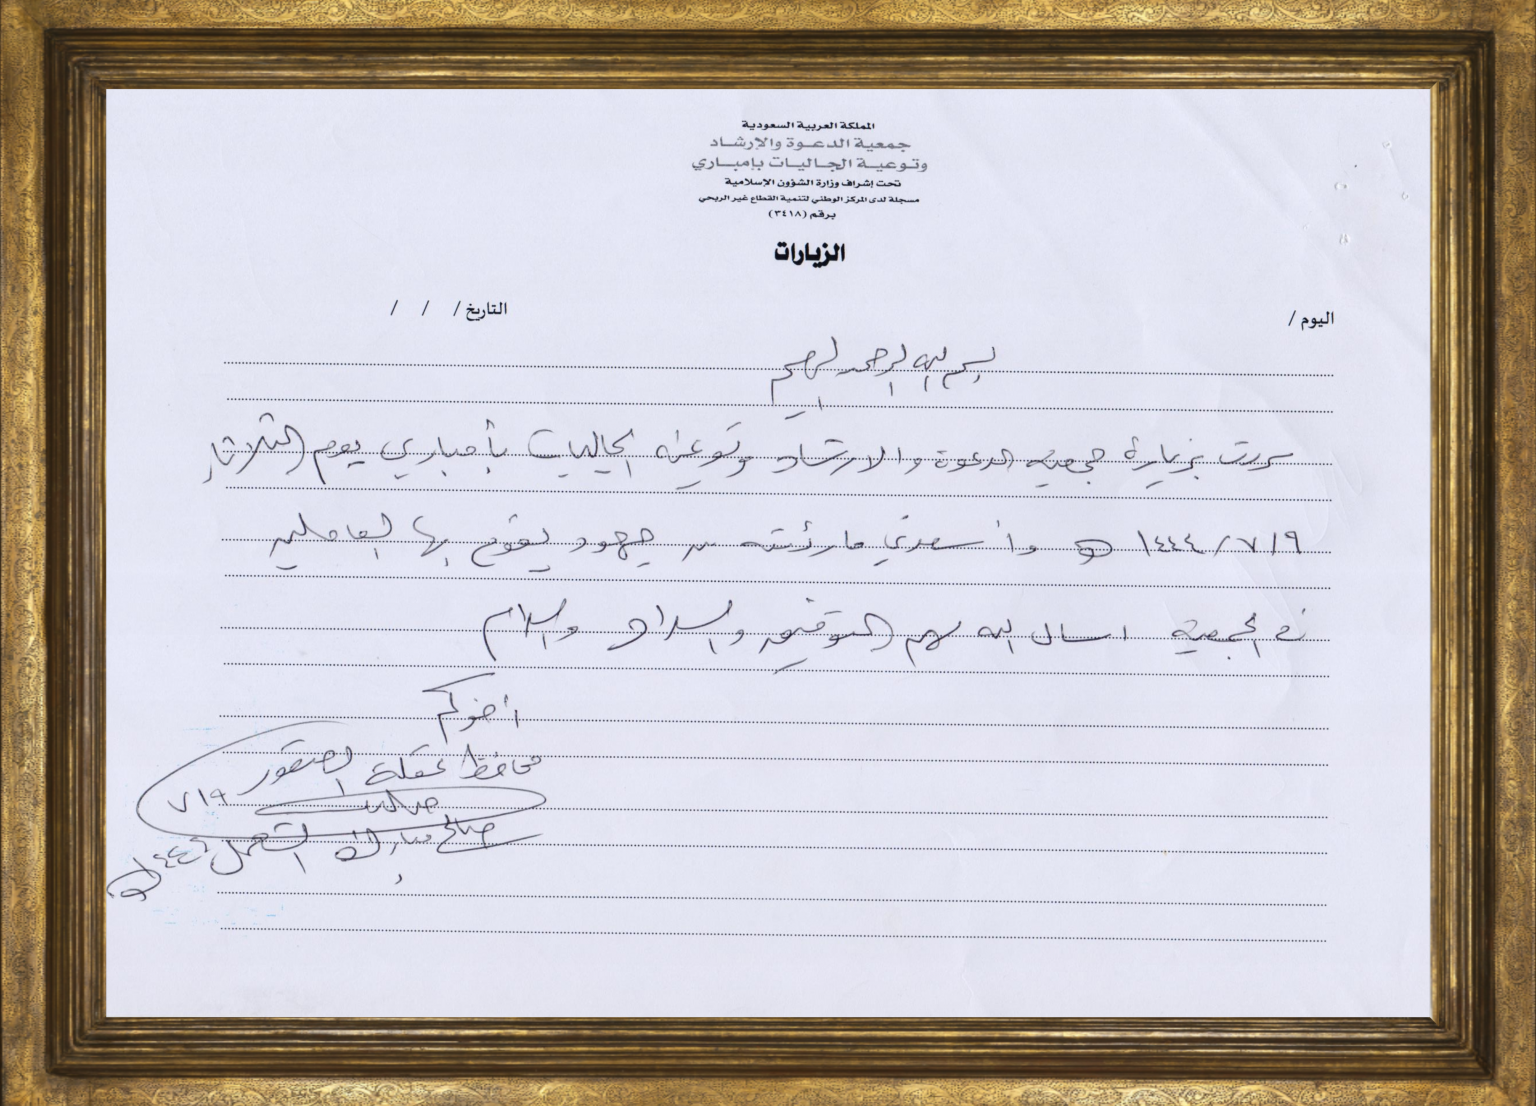 المملكة العربية السعودية
جمعية الدعوة والإرشاد
وتوعية الجاليات بإمباري
تحت إشراف وزارة الشؤون الإسلامية
مسجلة لدى المركز الوطني لتنمية القطاع غير الربحي
برقم (٣٤١٨)
الزيارات
اليوم / التاريخ / / /
بسم الله الرحمن الرحيم
سررت بزيارة جمعية الدعوة والارشاد وتوعية الجاليات بأمباري يوم الثلاثاء
١٤٤٤/٧/٩ هـ وأسعدني مارئته من جهود يقوم بها العاملين
في الجمعية اسال الله لهم التوفيق والسداد والسلام
أخوكم
محافظ عقلة الصقور
٧/٩
صالح مبارك
١٤٤٤هـ